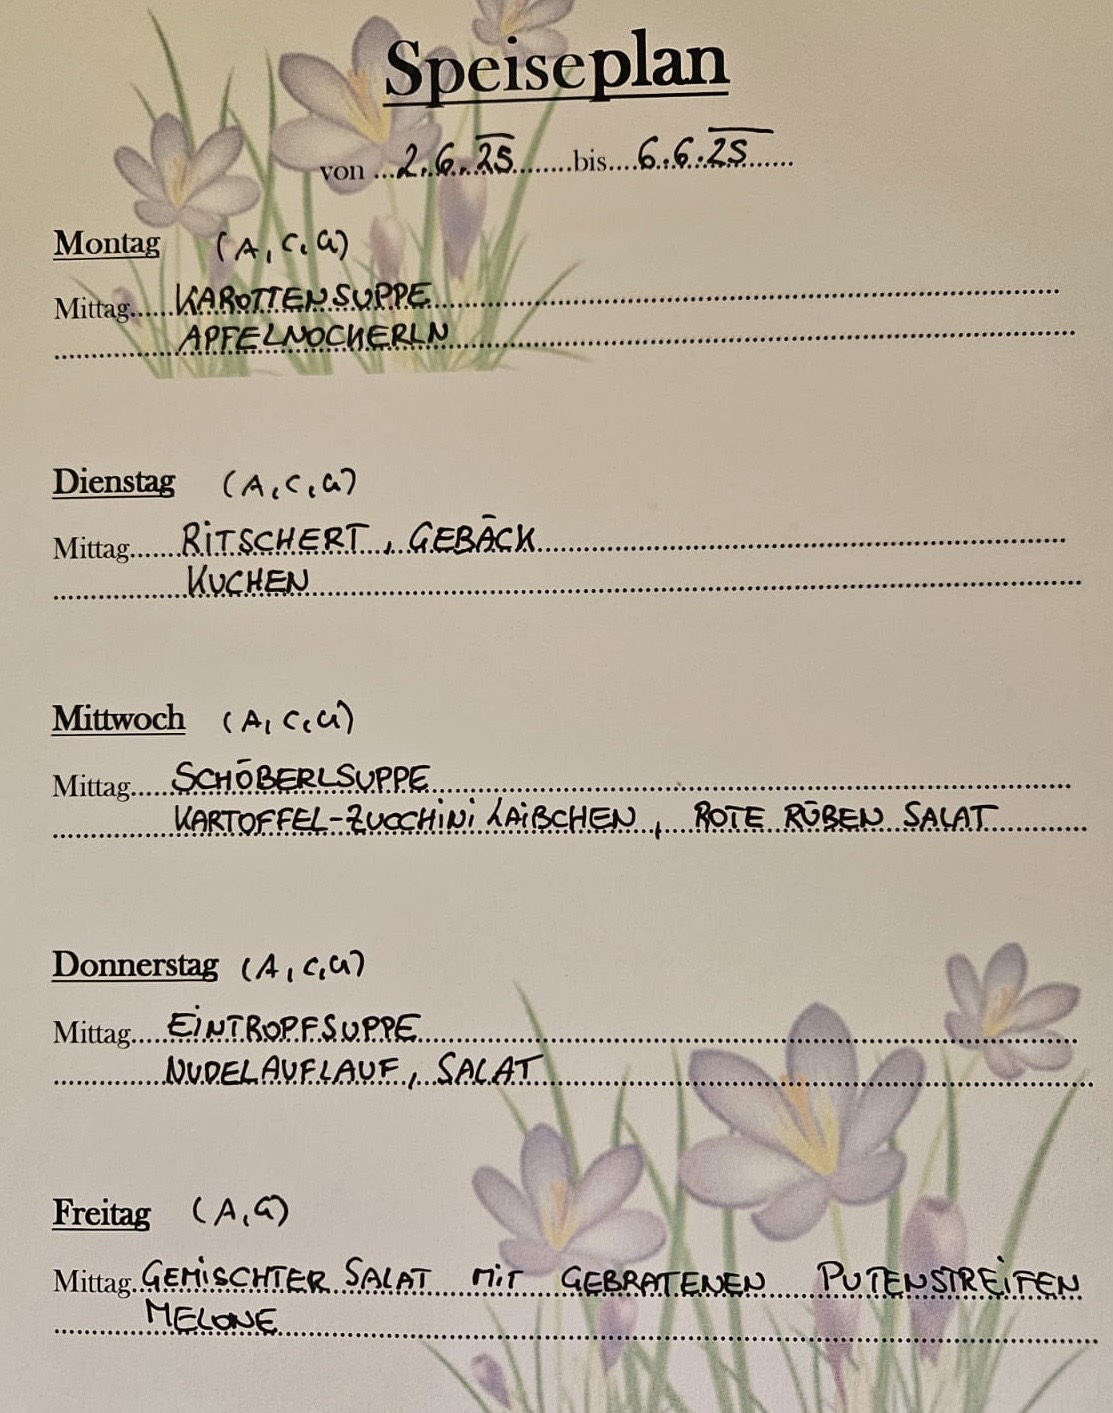 Speiseplan
von ...2.6.25.......bis....6.6.25......
Montag (A, C, G)
Mittag......KAROTTENSUPPE
APFELNOCKERLN
Dienstag (A, C, G)
Mittag......RITSCHERT, GEBÄCK
KUCHEN
Mittwoch (A, C, G)
Mittag......SCHÖBERLSUPPE
KARTOFFEL-ZUCCHINI LAIBCHEN, ROTE RÜBEN SALAT
Donnerstag (A, C, G)
Mittag......EINTROPFSUPPE
NUDELAUFLAUF, SALAT
Freitag (A, G)
Mittag..GEMISCHTER SALAT MIT GEBRATENEN PUTENSTREIFEN
MELONE